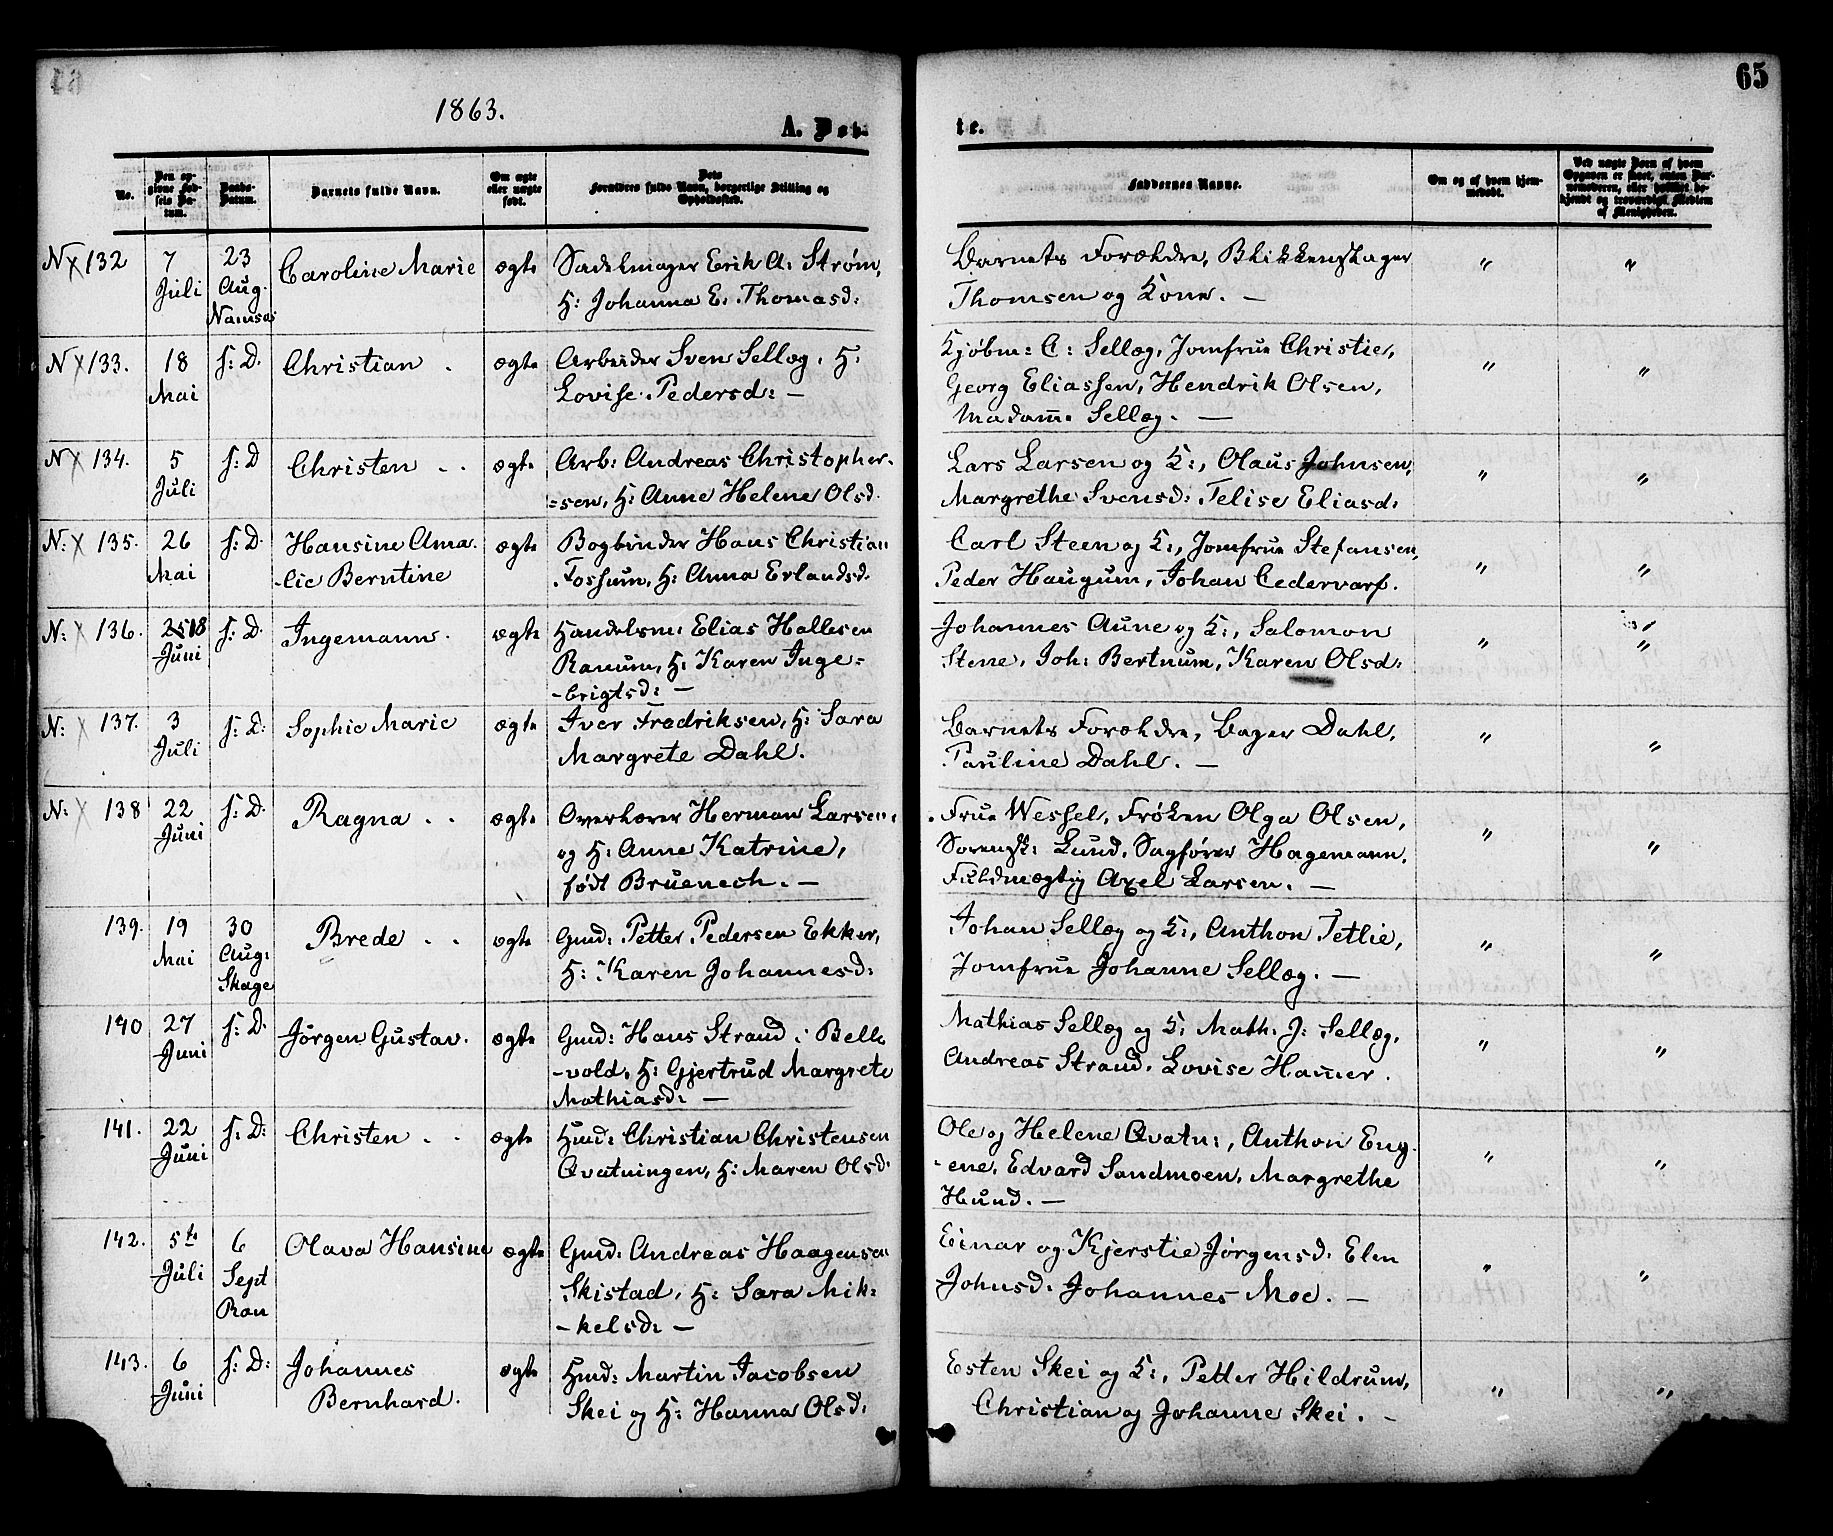 65
1863.
A. Døb-
te.
No.
Den opgivne Fødsels Datum.
Daabs-Datum.
Barnets fulde Navn.
Om ægte eller uægte født.
Dets Forældres fulde Navn, borgerlige Stilling og Opholdssted.
Faddernes Navne.
Om og af hvem hjemmedøbt.
Ved uægte Børn af hvem Opgaven er skeet, enten Barnemoderen, eller hvilket bekjendt og troværdigt Medlem af Menigheden.
N 132 7 Juli 23 Aug. Namsos Caroline Marie ægte Sadelmager Erik A: Strøm,
H: Johanna E: Thomasd:
Barnets Forældre, Blikkenslager
Thomsen og Kone. — " "
N 133. 18 Mai s: D. Christian . ægte Arbeider Sven Sellæg, H:
Lovise Pedersd: —
Kjøbm: C: Sellæg, Jomfrue Christie,
Georg Eliassen, Hendrik Olsen,
Madam Sellæg. — " "
N 134. 5 Juli s: D Christen . . ægte Arb: Andreas Christopher-
=sen, H: Anne Helene Olsd.
Lars Larsen og K:, Olaus Johnsen,
Margrethe Svensd: Felise Eliasd: " "
N: 135. 26 Mai s: D. Hansine Ama-
-lie Berntine ægte Bogbinder Hans Christian
Fossum, H: Anna Erlandsd.
Carl Steen og K:, Jomfrue Stefansen,
Peder Haugum, Johan Cedervarf. " "
N: 136. 18 Juni s: D. Ingemann. ægte Handelsm: Elias Hallesen
Ranum, H: Karen Inge-
-brigtsd: —
Johannes Aune og K:, Salomon
Stene, Joh: Bertnum, Karen Olsd: " "
N: 137. 3 Juli s: D: Sophie Marie ægte Iver Fredriksen, H: Sara
Margrete Dahl.
Barnets Forældre, Bager Dahl,
Pauline Dahl. — " "
N: 138 22 Juni s: D. Ragna . . ægte Overlærer Herman Larsen
og H: Anne Katrine,
født Bruenech. —
Frue Wessel, Frøken Olga Olsen,
Sorensk: Lund, Sagfører Hagemann,
Fuldmægtig Axel Larsen. — " "
139. 19 Mai 30 Aug: Skage Brede . . ægte Gmd: Petter Pedersen Ekker,
H: Karen Johannesd:
Johan Sellæg og K:, Anthon Tetlie,
Jomfrue Johanne Sellæg. — " "
140 27 Juni s: D. Jørgen Gustav. ægte Gmd: Hans Strand i Belb
-vold, H: Gjertrud Margrete
Mathiasd: —
Mathias Sellæg og K: Math: J: Sellæg,
Andreas Strand, Lovise Hammer. " "
141. 22 Juni s: D: Christen . . ægte Hmd: Christian Christensen
Qvatningen, H: Maren Olsd:
Ole og Helene Qvatn:, Anthon Eng-
-ene, Edvard Sandmoen, Margrethe
Hund. — " "
142. 5te Juli 6 Sept Ran Olava Hansine ægte Gmd: Andreas Haagensen
Skistad, H: Sara Mik-
-kelsd: —
Einar og Kjerstie Jørgensd: Elen
Johnsd: Johannes Moe. — " "
143. 6 Juni s: D: Johannes
Bernhard. ægte Hmd: Martin Jacobsen
Skei og H: Hanna Olsd:
Esten Skei og K:, Petter Hildrum,
Christian og Johanne Skei. — " "